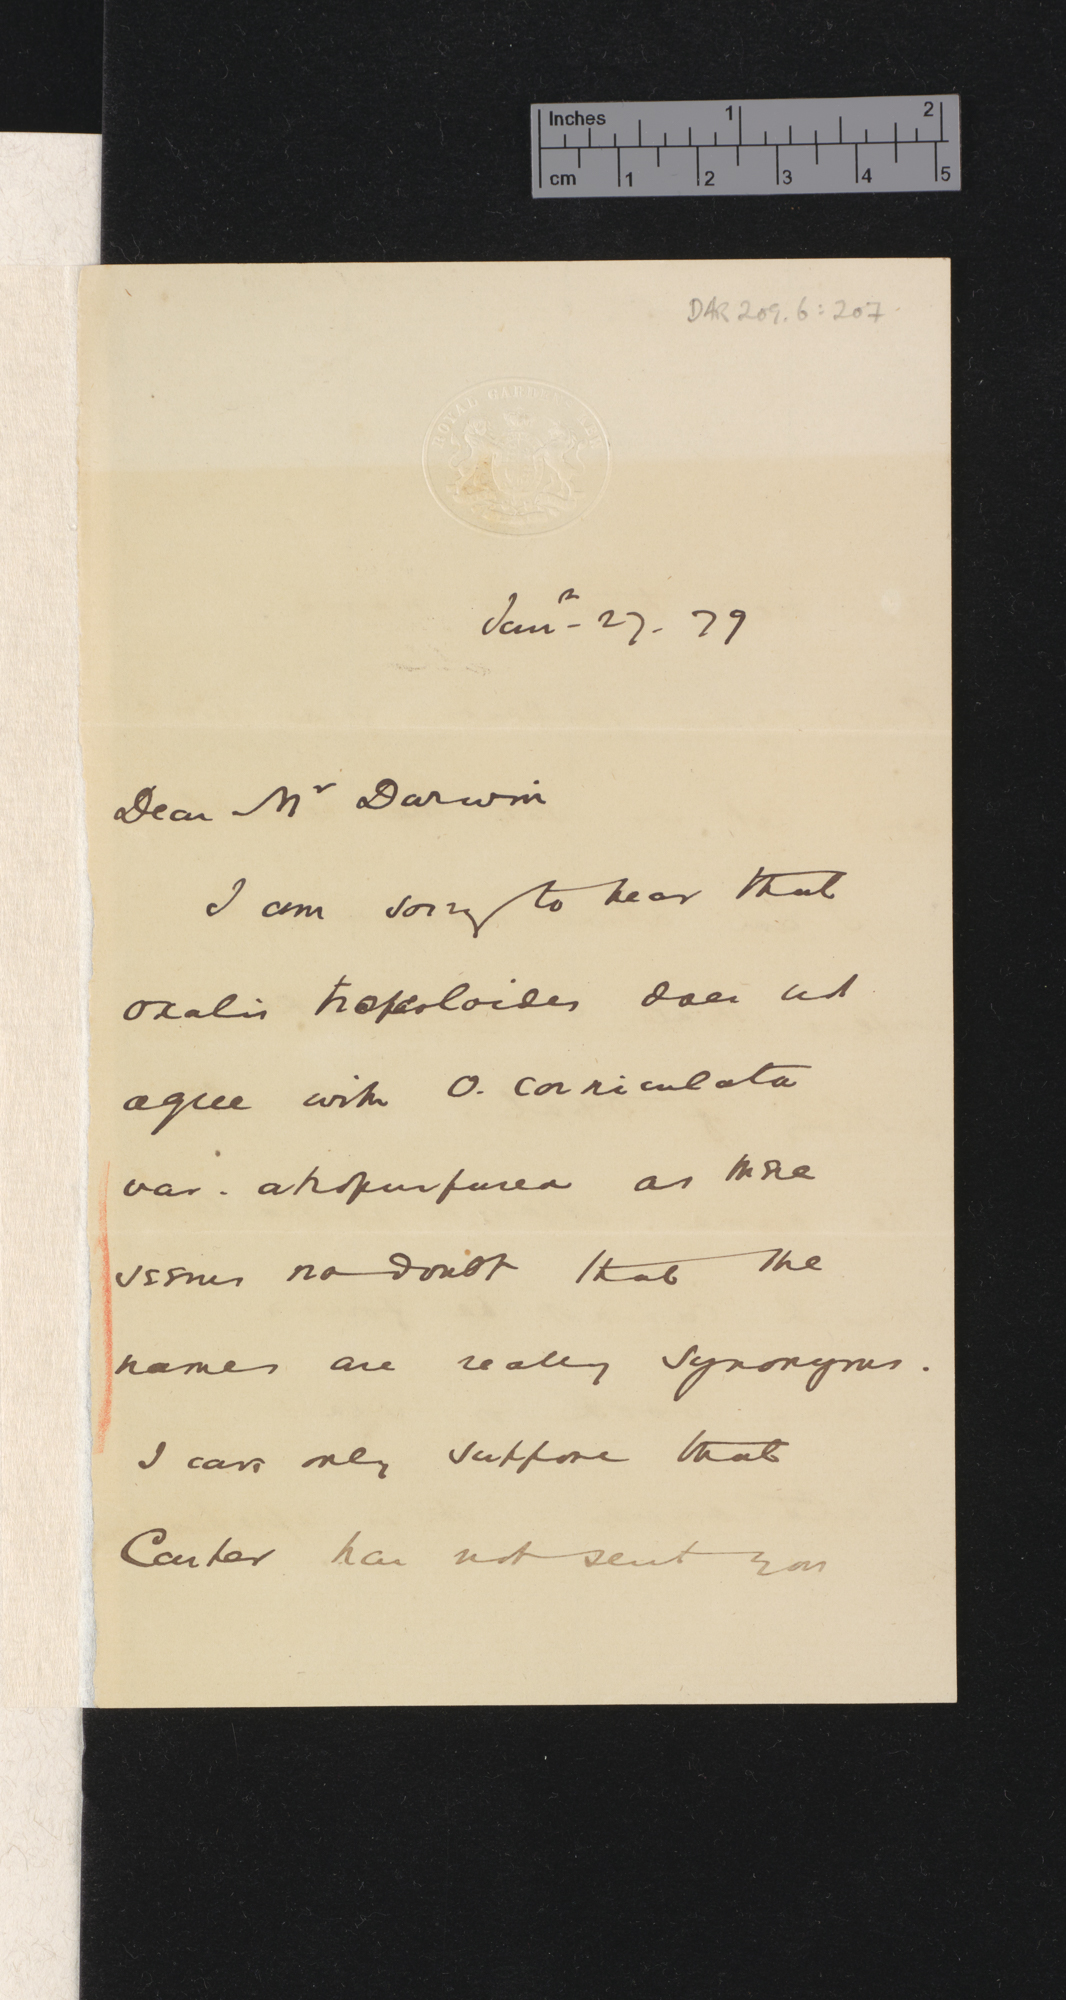 Inches 1 2
cm 1 2 3 4 5
DAR 209.6:207
ROYAL GARDENS KEW
Jany. 27. 79
Dear Mr Darwin
I am sorry to hear that
oxalis tropæoloides does not
agree with O. corniculata
var. atropurpurea as there
seems no doubt that the
names are really synonyms.
I can only suppose that
Carter has not sent you